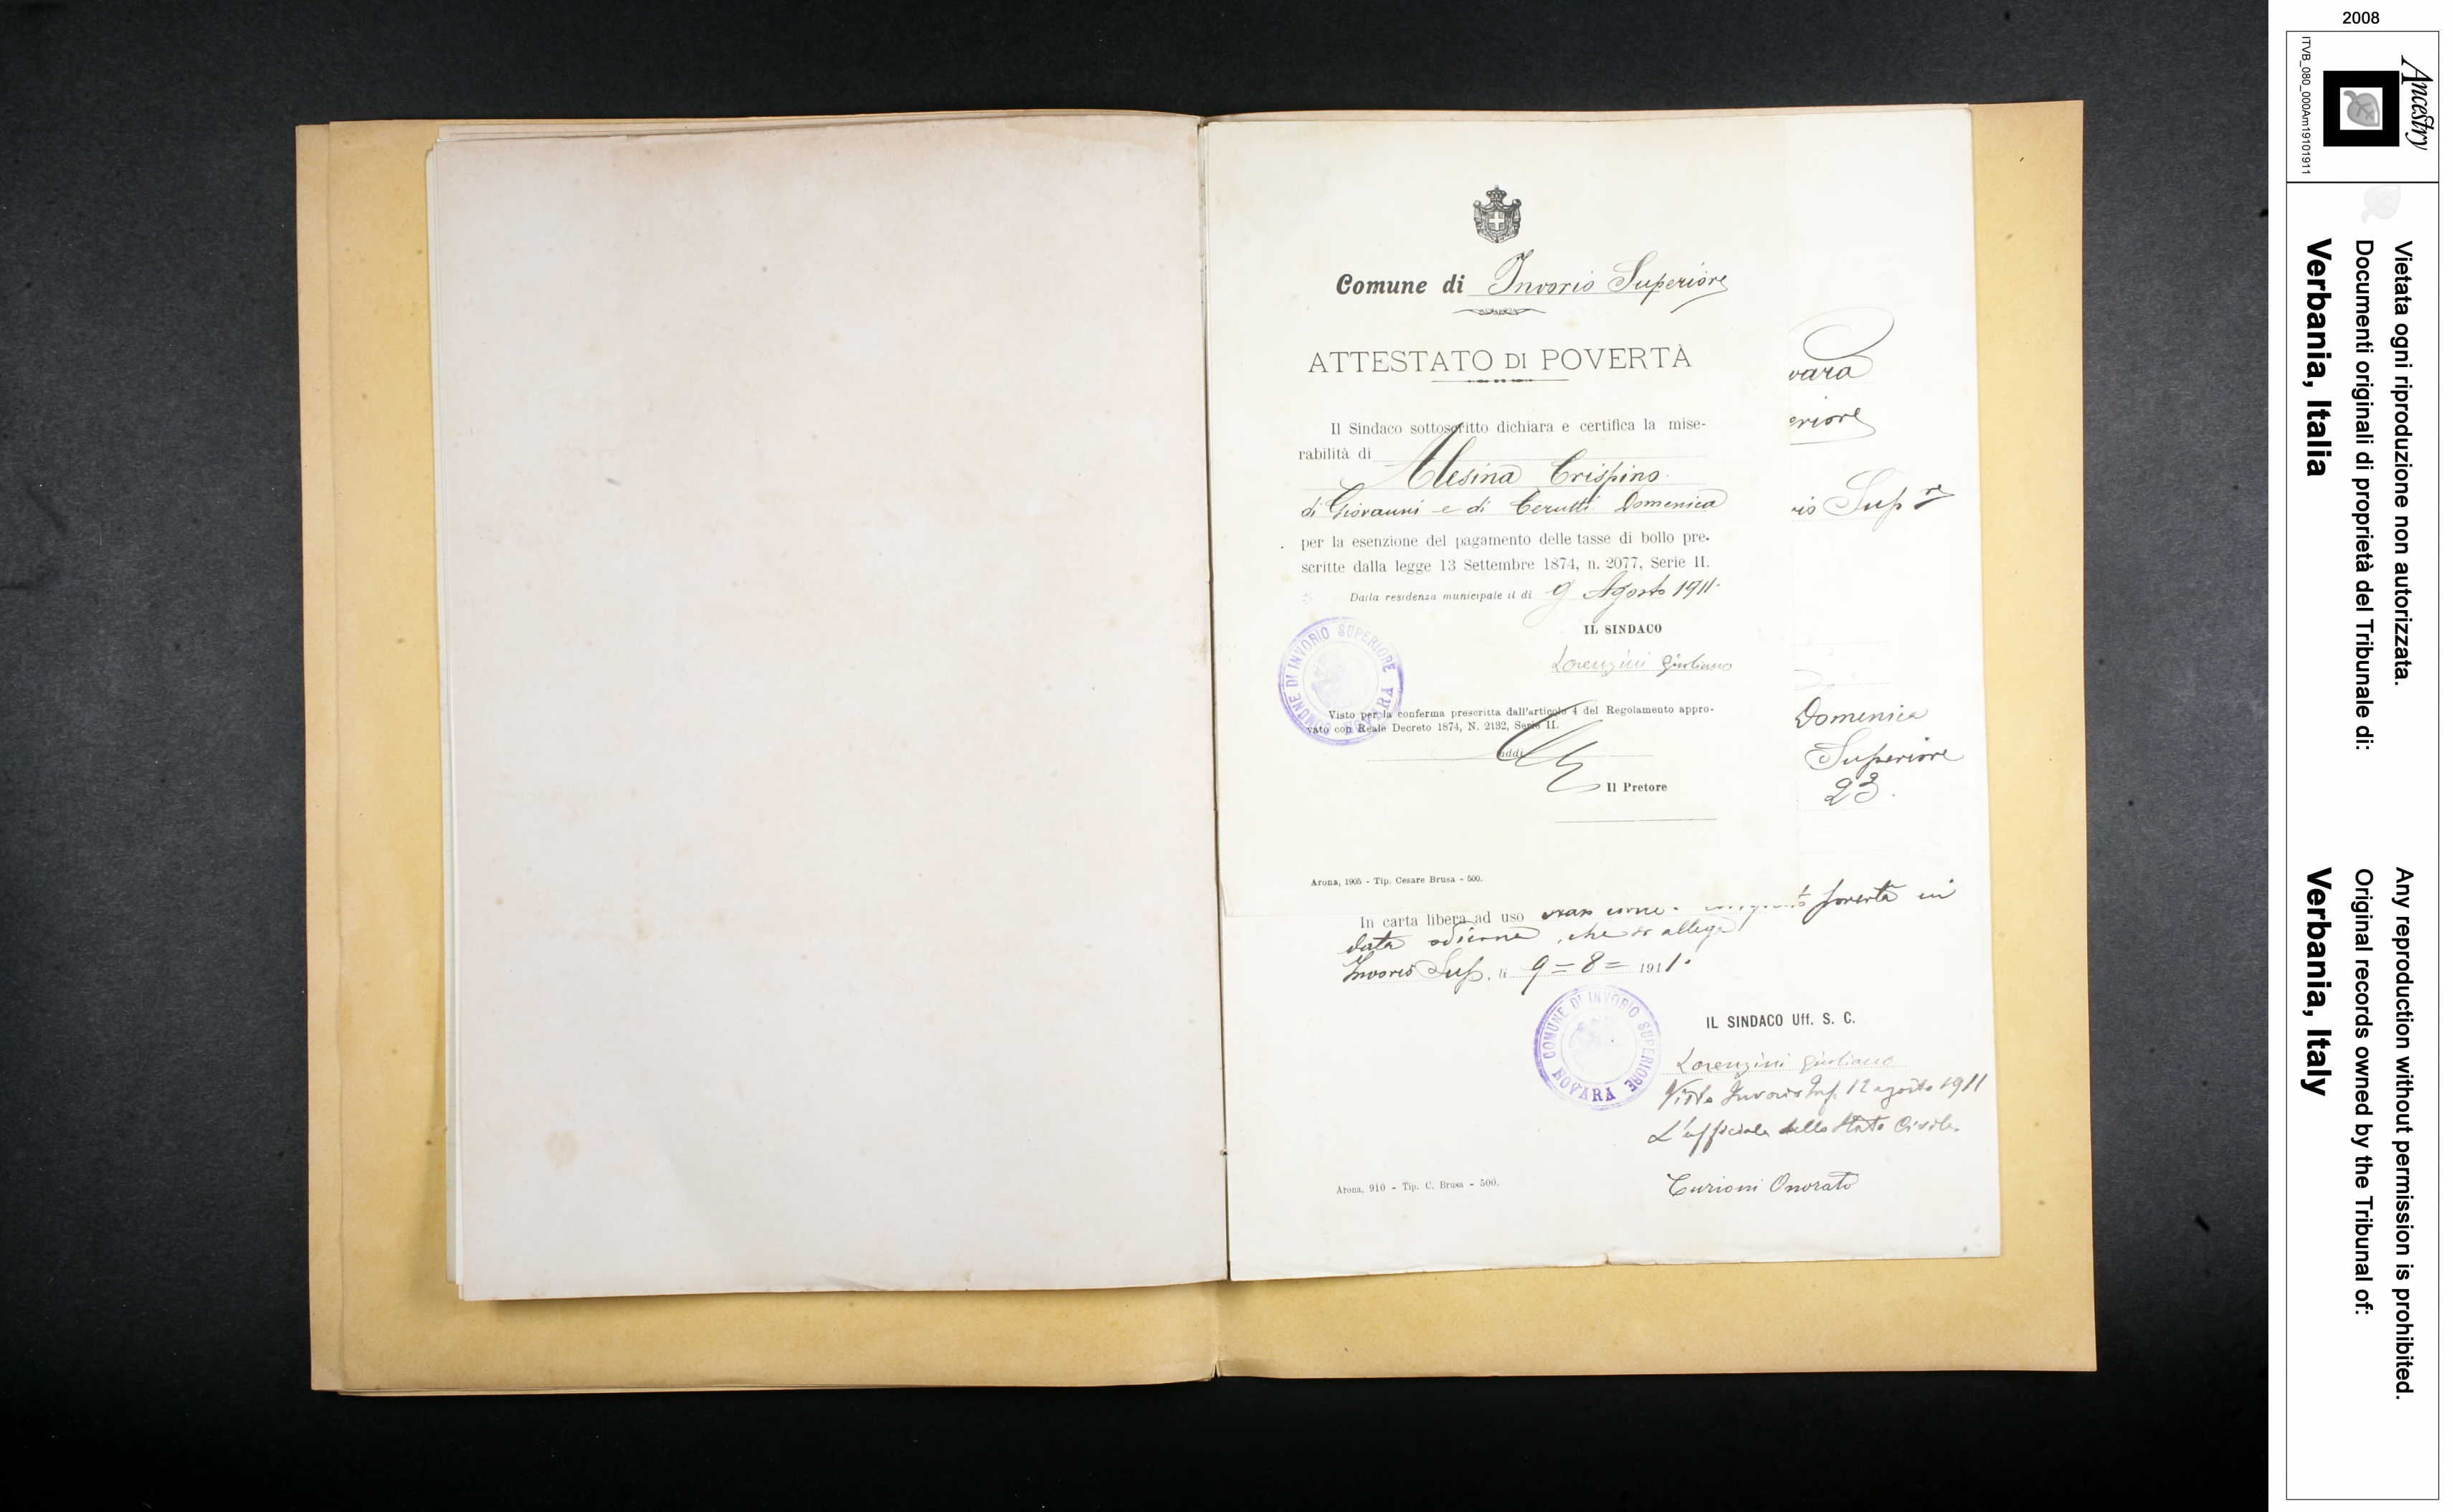 Comune di Invorio Superiore
ATTESTATO DI POVERTÀ
Il Sindaco sottoscritto dichiara e certifica la mise-
rabilità di
Alesina Crispino
di Giovanni e di Cerutti Domenica
per la esenzione del pagamento delle tasse di bollo pre-
scritte dalla legge 13 Settembre 1874, n. 2077, Serie II.
Dalla residenza municipale il di 9 Agosto 1911.
IL SINDACO
Lorenzini Giuliano
COMUNE DI INVORIO SUPERIORE
NOVARA
Visto per la conferma prescritta dall'articolo 4 del Regolamento appro-
vato con Reale Decreto 1874, N. 2132, Serie II.
addì
Il Pretore
Arona, 1905 - Tip. Cesare Brusa - 500.
vara
eriore
rio Sup re
Domenica
Superiore
23.
In carta libera ad uso povertà in
data odierna, che si allega
Invorio Sup. li 9=8= 1911.
COMUNE DI INVORIO SUPERIORE
NOVARA
IL SINDACO Uff. S. C.
Lorenzini Giuliano
Visto Invorio Inf. 12 agosto 1911
L'ufficiale dello Stato Civile
Curioni Onorato
Arona, 910 - Tip. C. Brusa - 500.
2008
Ancestry
ITVB_080_000Am19101911
Vietata ogni riproduzione non autorizzata.
Documenti originali di proprietà del Tribunale di:
Verbania, Italia
Any reproduction without permission is prohibited.
Original records owned by the Tribunal of:
Verbania, Italy